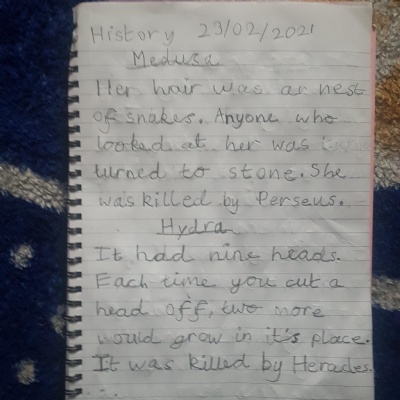 History 23/02/2021
Medusa
Her hair was a nest
of snakes. Anyone who
looked at her was
turned to stone. She
was killed by Perseus.
Hydra
It had nine heads.
Each time you cut a
head off, two more
would grow in it's place.
It was killed by Heracles.